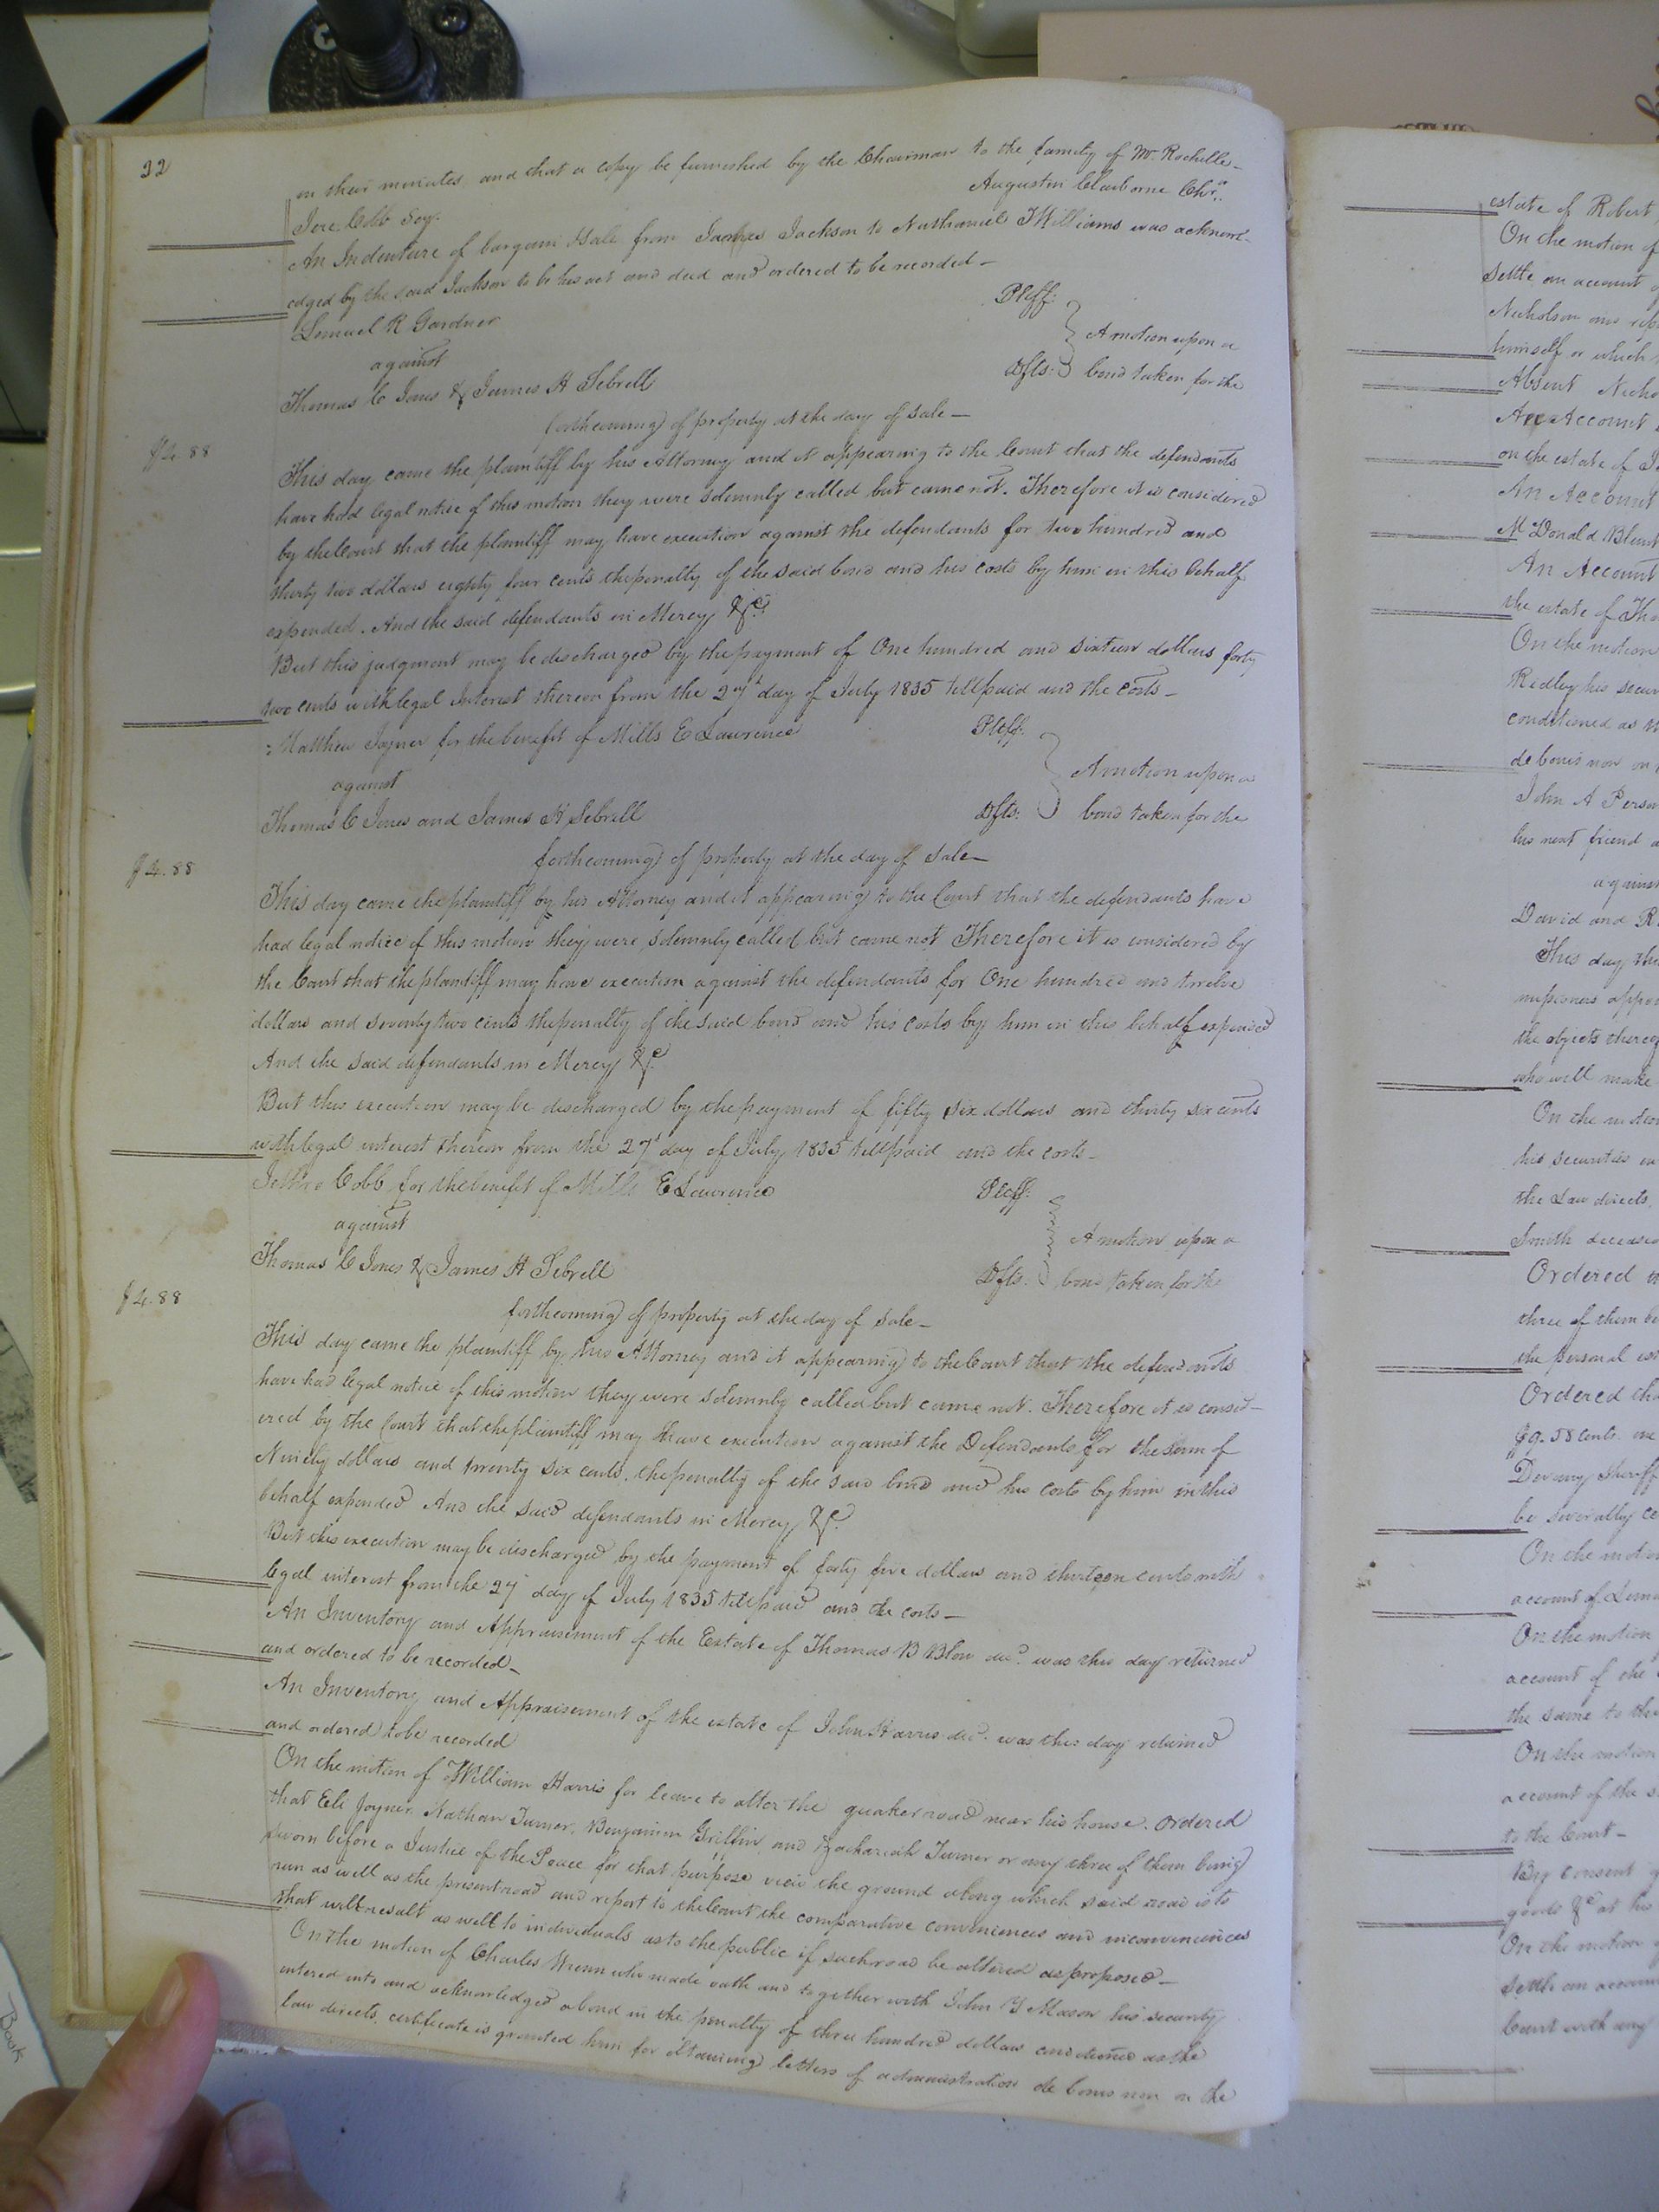 22
on their minutes and that a copy be furnished by the Chairman to the family of Mr. Rochelle_
Augustin Claiborne Chrn.
Jere Cobb Secy.
An Indenture of bargain & Sale from James Jackson to Nathaniel T Williams was acknowl-
edged by the said Jackson to be his act and deed and ordered to be recorded_
Lemuel R Gardner Pltff:
against
A motion upon a
Thomas C Jones & James H Sebrell Dfts: bond taken for the
forthcoming of property at the day of sale_
$4.88
This day came the plaintiff by his Attorney and it appearing to the Court that the defendants
have had legal notice of this motion they were solemnly called but came not. Therefore it is considered
by the Court that the plaintiff may have execution against the defendants for two hundred and
thirty two dollars eighty four cents the penalty of the said bond and his costs by him in this behalf
expended. And the said defendants in Mercy &c.
But this judgment may be discharged by the payment of One hundred and sixteen dollars forty
two cents with legal Interest thereon from the 27th day of July 1835 till paid and the costs_
Matthew Joyner for the benefit of Mills E Lawrence Pltff.
against
A motion upon a
Thomas C Jones and James H Sebrell Dfts: bond taken for the
forthcoming of property at the day of sale_
$4.88
This day came the plaintiff by his Attorney and it appearing to the Court that the defendants have
had legal notice of this motion they were solemnly called but came not Therefore it is considered by
the Court that the plaintiff may have execution against the defendants for One hundred and twelve
dollars and seventy two cents the penalty of the said bond and his costs by him in this behalf expended
And the said defendants in Mercy &c.
But this execution may be discharged by the payment of fifty six dollars and thirty six cents
with legal interest thereon from the 27th day of July 1835 till paid and the costs_
Jethro Cobb for the benefit of Mills E Lawrence Pltff:
against
A motion upon a
Thomas C Jones & James H Sebrell Dfts: bond taken for the
$4.88
forthcoming of property at the day of sale_
This day came the plaintiff by his Attorney and it appearing to the Court that the defendants
have had legal notice of this motion they were solemnly called but came not. Therefore it is consid-
ered by the Court that the plaintiff may have execution against the Defendants for the sum of
Ninety dollars and twenty six cents, the penalty of the said bond and his costs by him in this
behalf expended And the said defendants in Mercy &c.
But this execution may be discharged by the payment of forty five dollars and thirteen cents with
legal interest from the 27th day of July 1835 till paid and the costs_
An Inventory and Appraisement of the Estate of Thomas B Blow decd. was this day returned
and ordered to be recorded_
An Inventory and Appraisement of the estate of John Harris decd. was this day returned
and ordered to be recorded
On the motion of William Harris for leave to alter the quaker road near his house. Ordered
that Eli Joyner, Nathan Turner, Benjamin Griffin and Zachariah Turner or any three of them being
sworn before a Justice of the Peace for that purpose view the ground along which said road is to
run as well as the present road and report to the Court the comparative conveniences and inconveniences
that will result as well to individuals as to the public if such road be altered as proposed_
On the motion of Charles Wrenn who made oath and together with John Y Mason his security
entered into and acknowledged a bond in the penalty of three hundred dollars conditioned as the
law directs, certificate is granted him for obtaining letters of administration de bonis non on the
estate of Robert
On the motion of
settle an account
Nicholson and
himself or which
Absent Nicho
An Account
on the estate of
An Account
McDonald Blunt
An Account
the estate of Tho
On the motion
Ridley his secur
conditioned as
de bonis non on
John A Person
his next friend
against
David and R
This day the
missioners appoi
the objects thereof
who will make
On the motion
his securities
the Law directs,
Smith deceased
Ordered
three of them be
the personal est
Ordered tha
$9.58 Cents
Sheriff
be severally
On the motion
account of Lem
On the motion
account of the
the same to the
On the motion
account of the
to the Court_
By consent
goods &c at his
On the motion
settle an account
Court with any
Book